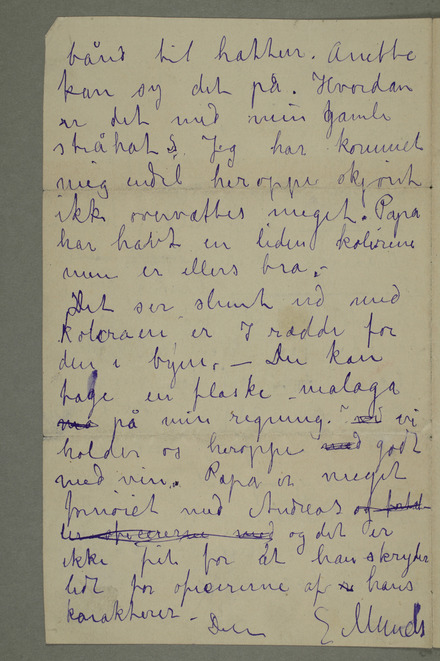 bånd til hatten. Anette
kan sy det på. Hvordan
er det med min gamle
stråhat? Jeg har kommet
mig endel heroppe skjønt
ikke overvættes meget. Papa
har havt en liden kolerine
men er ellers bra.–
Det ser slemt ud med
Koleraen er I rædde for
den i byen. – Du kan
tage en flaske malaga
på min regning. – vi
holder os heroppe godt
med vin. Papa er meget
fornøiet med Andreas og
officererne med og det er
ikke frit for åt han skryder
lidt for officererne af hans
karakterer –
Din E Munch